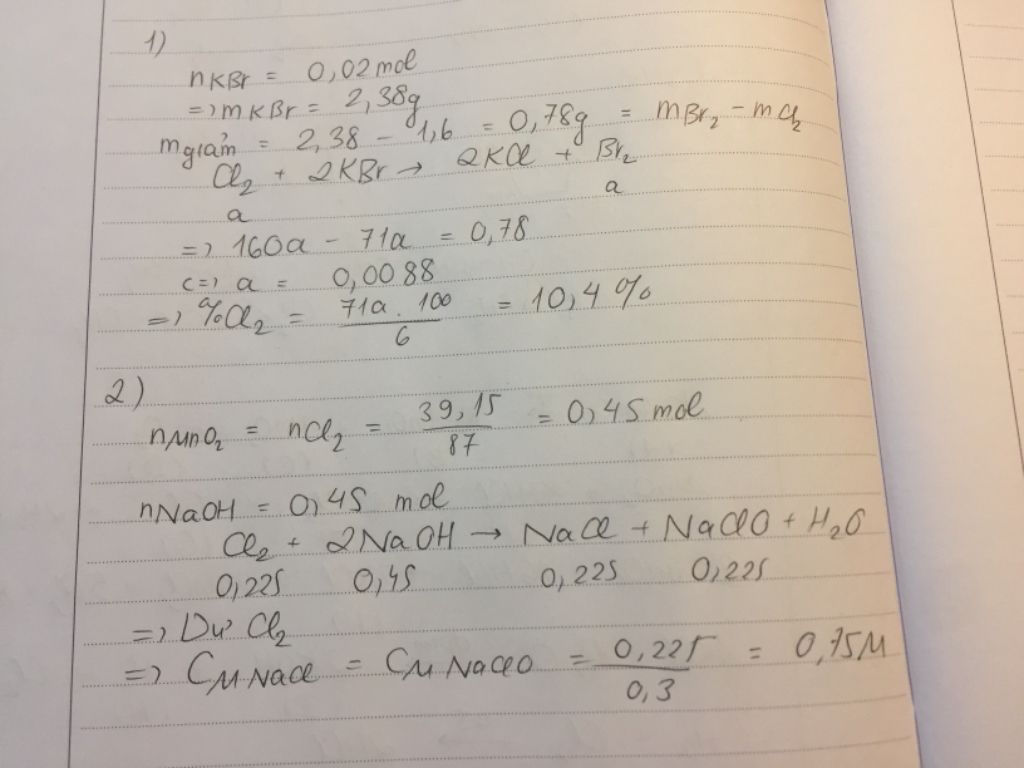 1)
nKBr = 0,02 mol
=> mKBr = 2,38g
mgiảm = 2,38 - 1,6 = 0,78g = mBr₂ - mCl₂
Cl₂ + 2KBr → 2KCl + Br₂
a a
=> 160a - 71a = 0,78
<=> a = 0,0088
=> %Cl₂ = 71a.100 / 6 = 10,4 %
2)
nMnO₂ = nCl₂ = 39,15 / 87 = 0,45 mol
nNaOH = 0,45 mol
Cl₂ + 2NaOH → NaCl + NaClO + H₂O
0,225 0,45 0,225 0,225
=> Dư Cl₂
=> CM NaCl = CM NaClO = 0,225 / 0,3 = 0,75M